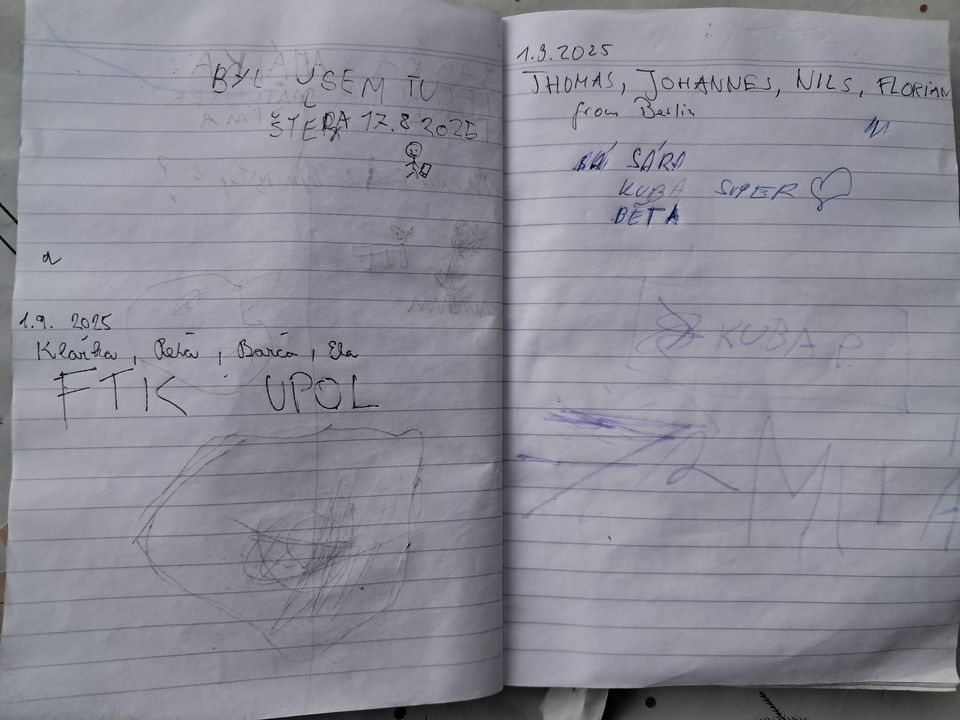 BYL JSEM TU
ŠTĚPA 17.8 2025
1.9. 2025
Klárka, Péťa, Barča, Ela
FTK UPOL
1.9.2025
THOMAS, JOHANNES, NILS, FLORIAN
from Berlin
SÁRA
KUBA SUPER
BĚTA
KUBA P.
MILA